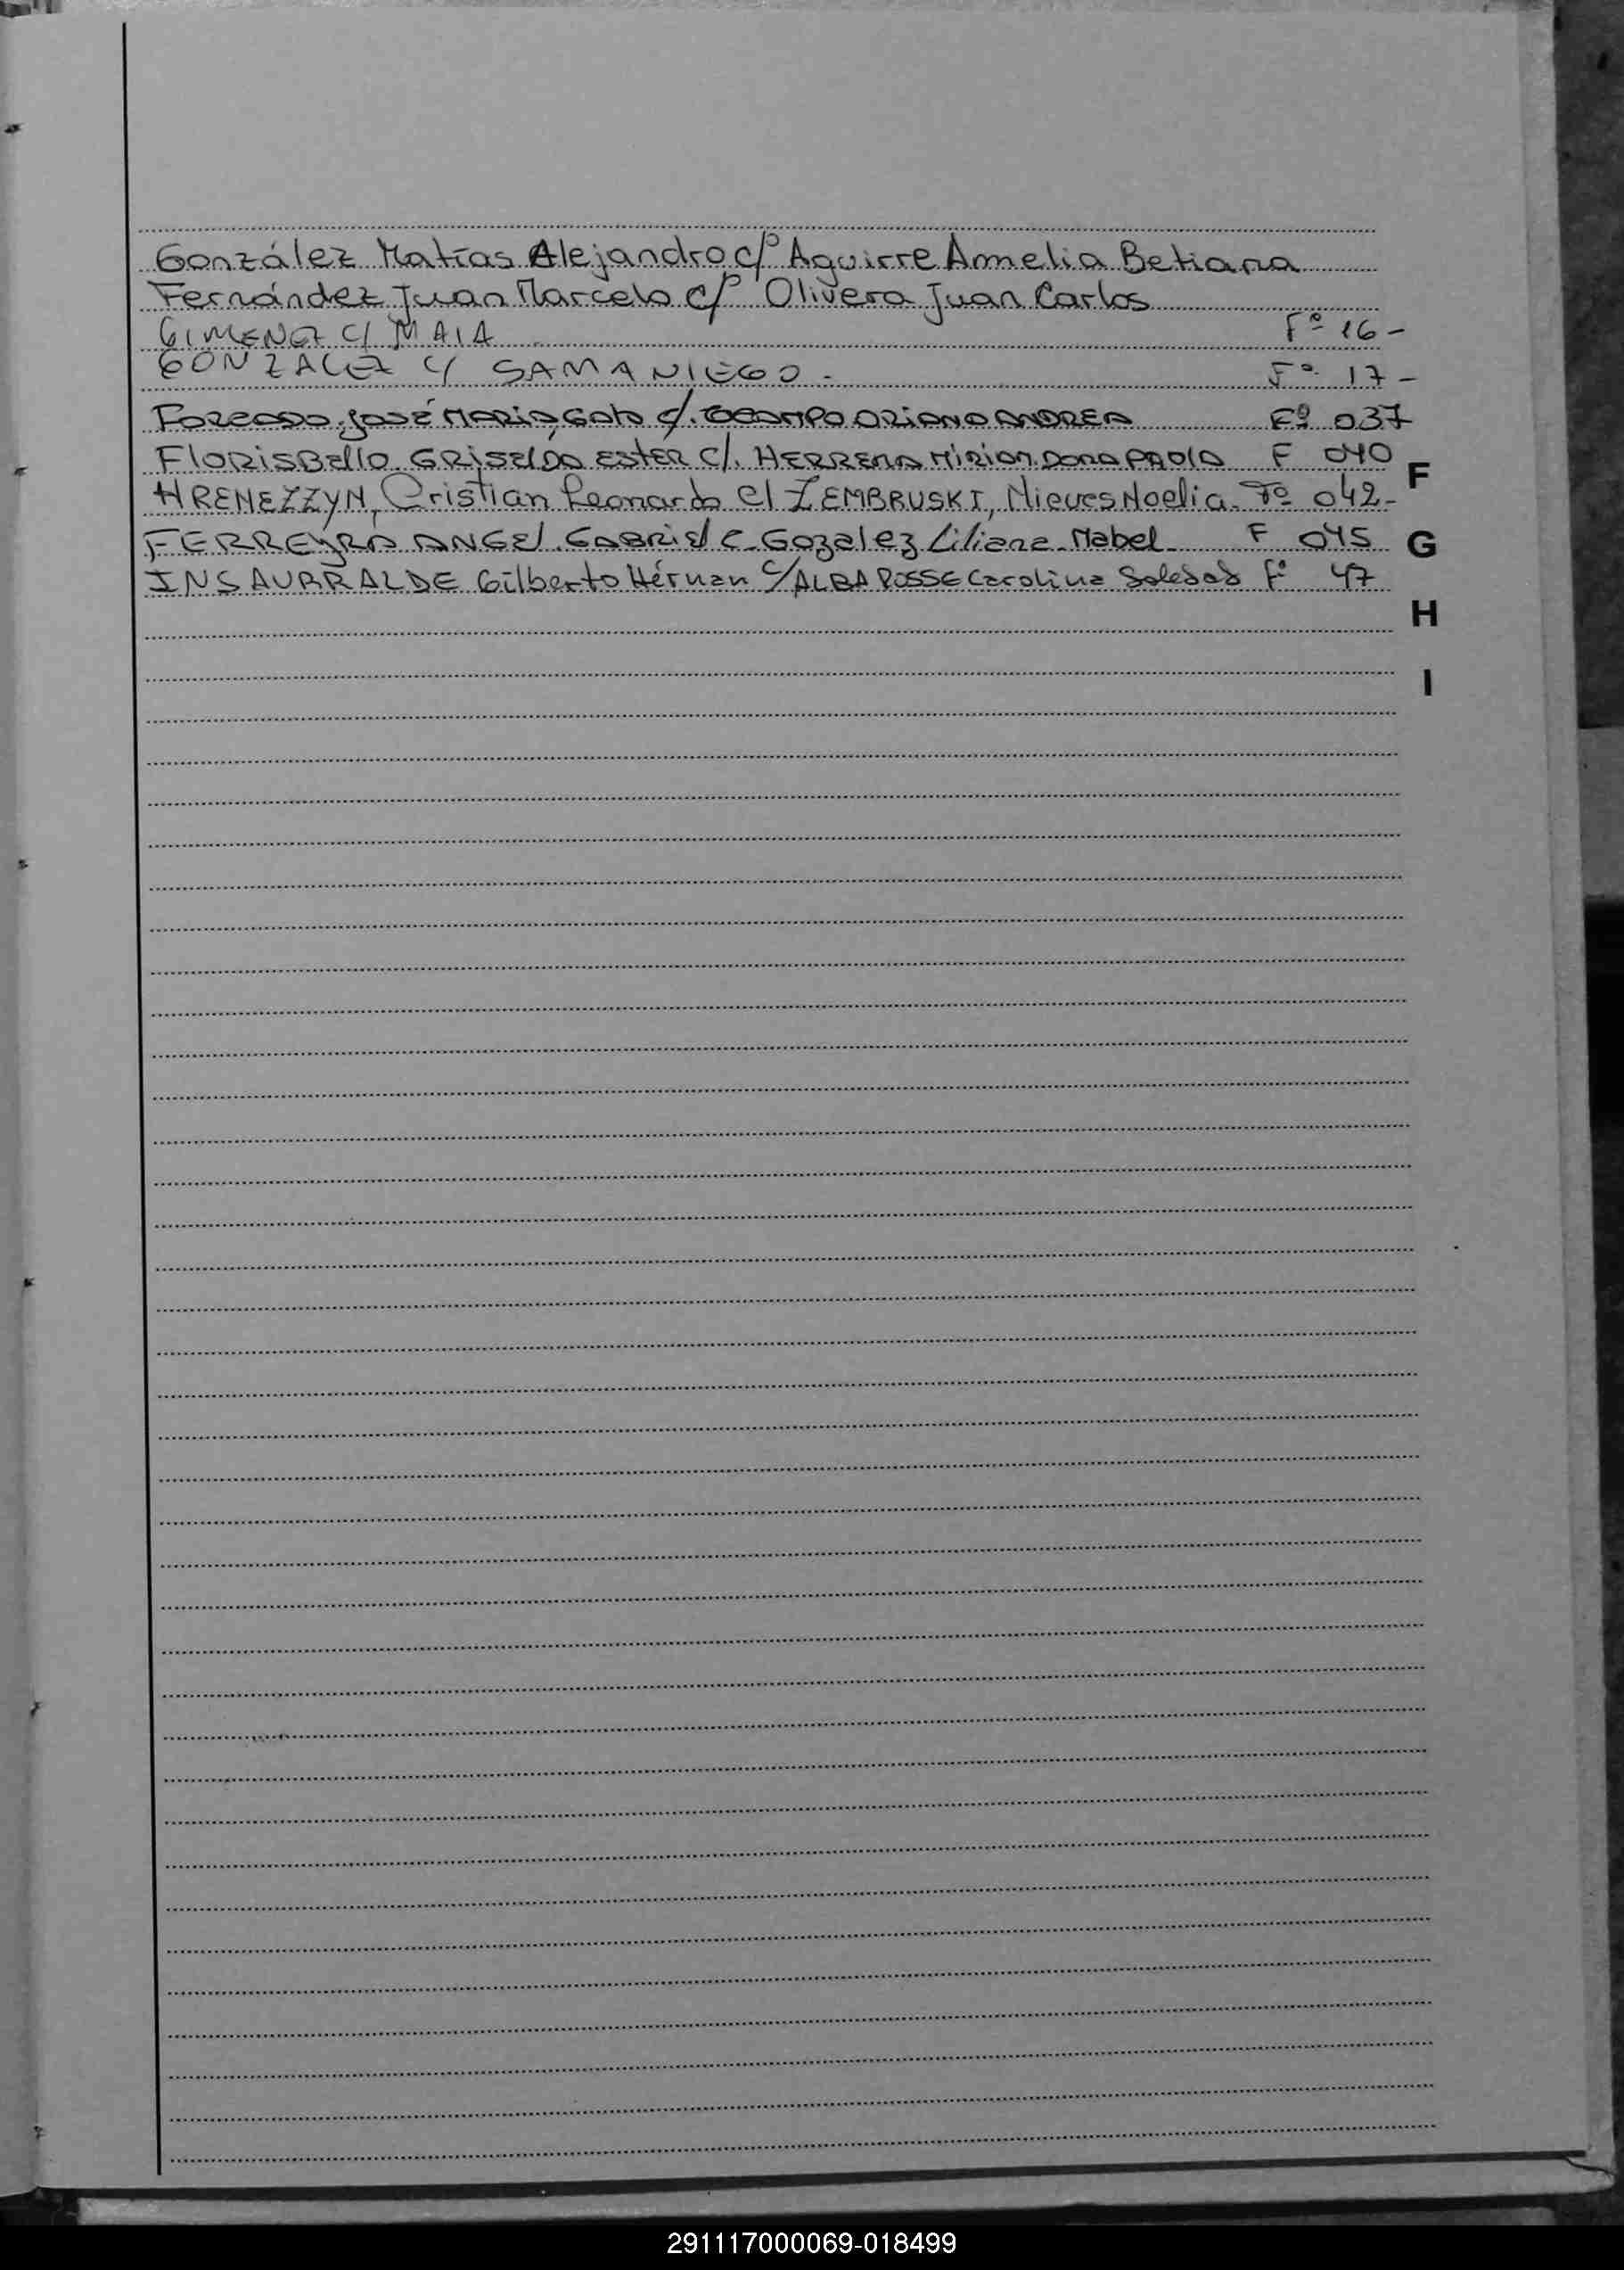 González Matías Alejandro c/º Aguirre Amelia Betiana
Fernández Juan Marcelo c/º Olivera Juan Carlos
GIMENEZ c/ MAIA Fº 16-
GONZALEZ c/ SAMANIEGO - Fº 17-
José Maria, Gato c/. OCAMPO ORIANA ANDREA Fº 037
FlorisBello GRISELDA ESTER C/. HERRERA Mirian Dora Paola F 040
HRENEZZYN, Cristian Leonardo c/ ZEMBRUSKI, Nieves Noelia. Fº 042-
FERREYRA ANGEL GABRIEL C. Gozalez Liliana Mabel F 045
INSAURRALDE Gilberto Hérnan c/ ALBA ROSSE Carolina Soledad Fº 47
F
G
H
I
291117000069-018499